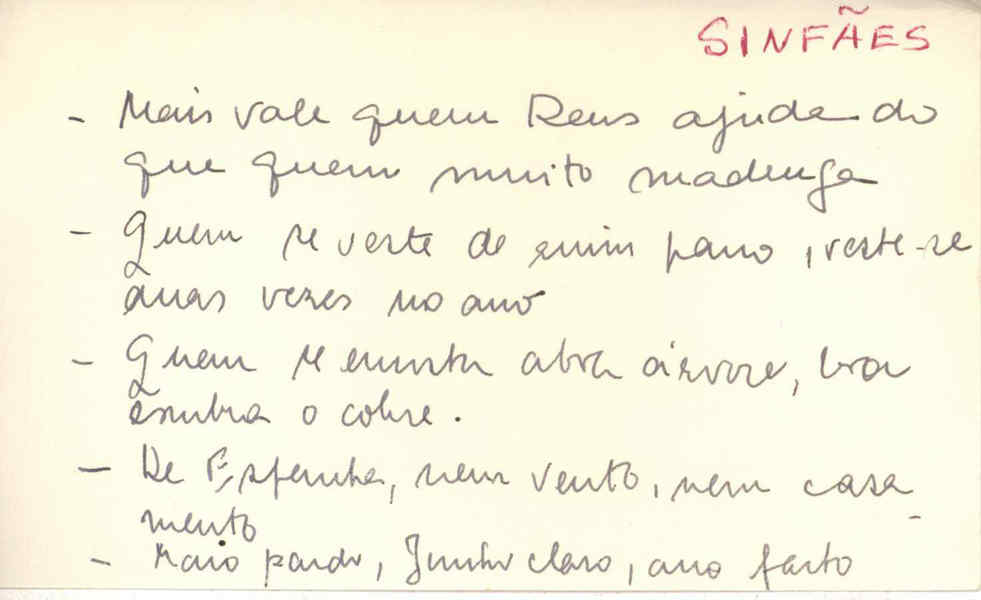 SINFÃES
- Mais vale quem Deus ajuda do
que quem muito madruga
- Quem se veste de ruim pano, veste-se
duas vezes no ano
- Quem se encosta a boa árvore, boa
sombra o cobre.
- De Espanha, nem vento, nem casa
mento
- Maio pardo, Junho claro, ano farto